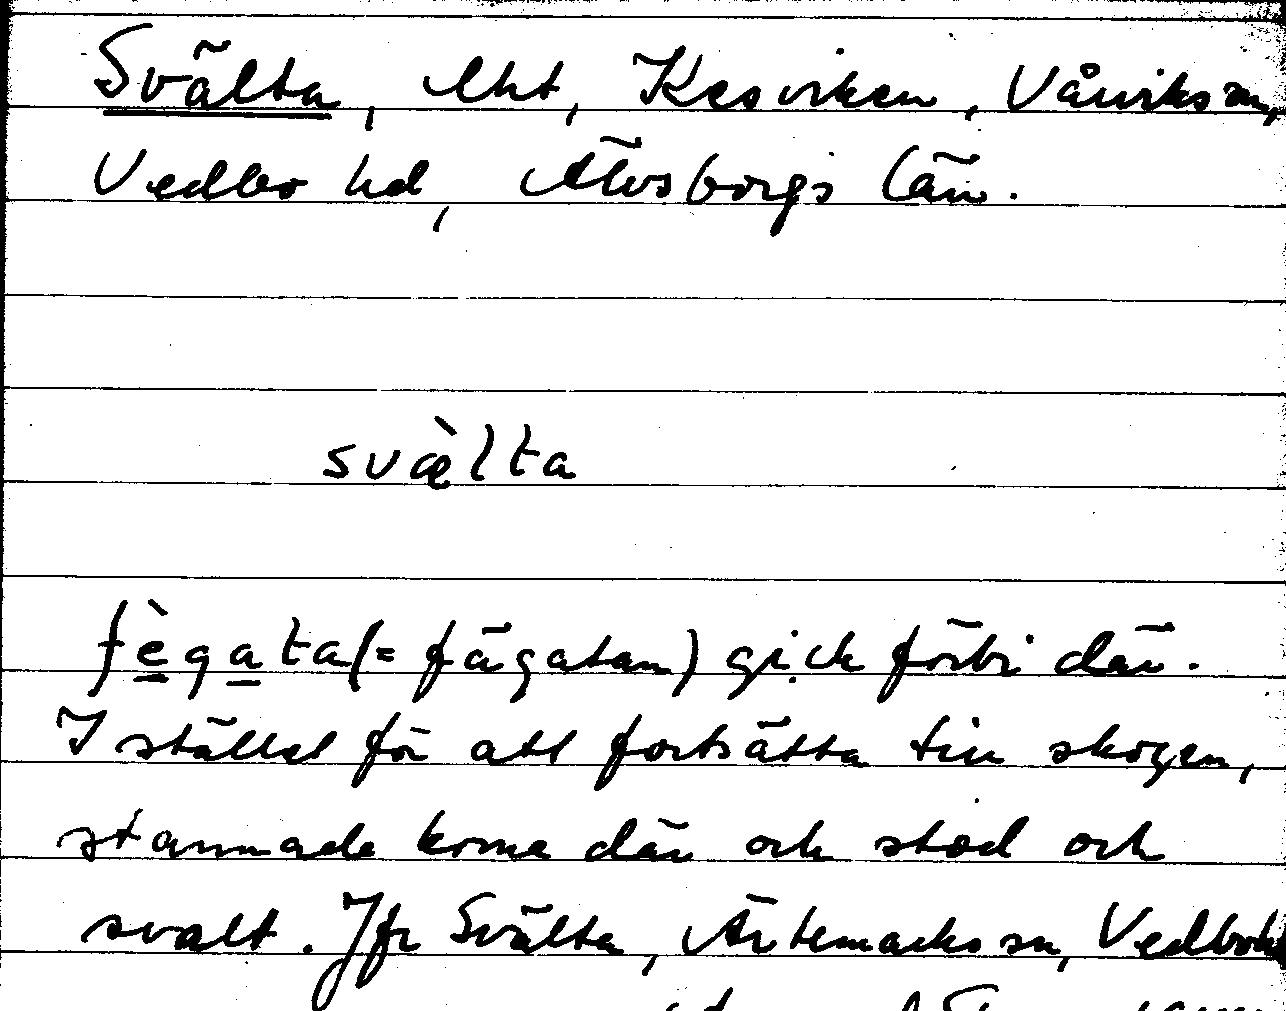 Svälta, lht, Kesviken, Vårviks sn,
Vedbo hd, Älvsborgs län.
svæ̀lta
fègata (= fägatan) gick förbi där.
I stället för att fortsätta till skogen,
stannade korna där och stod och
svalt. Jfr Svälta, Ärtemarks sn, Vedbo hd